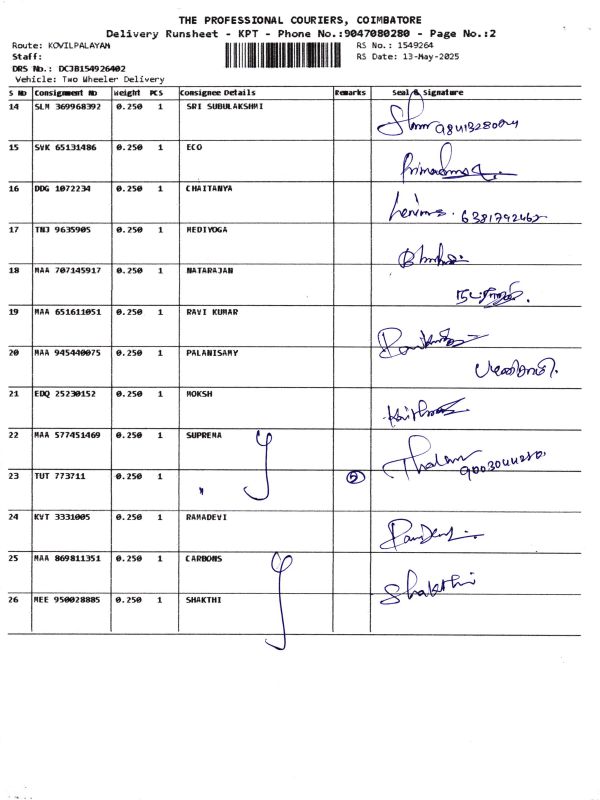 THE PROFESSIONAL COURIERS, COIMBATORE
Delivery Runsheet - KPT - Phone No.:9047080280 - Page No.:2
Route: KOVILPALAYAM
RS No.: 1549264
Staff:
RS Date: 13-May-2025
DRS No.: DCJB154926402
Vehicle: Two Wheeler Delivery
S No Consignment No Weight PCS Consignee Details Remarks Seal & Signature
14 SLM 369968392 0.250 1 SRI SUBULAKSHMI
15 SVK 65131486 0.250 1 ECO
16 DDG 1072234 0.250 1 CHAITANYA
6381792462
17 TNJ 9635905 0.250 1 MEDIYOGA
18 MAA 707145917 0.250 1 NATARAJAN
19 MAA 651611051 0.250 1 RAVI KUMAR
20 MAA 945440075 0.250 1 PALANISAMY
பழனிசாமி.
21 EDQ 25230152 0.250 1 MOKSH
22 MAA 577451469 0.250 1 SUPREMA
23 TUT 773711 0.250 1 " 5
24 KVT 3331005 0.250 1 RAMADEVI
25 MAA 869811351 0.250 1 CARBONS
Shakthi
26 MEE 950028885 0.250 1 SHAKTHI